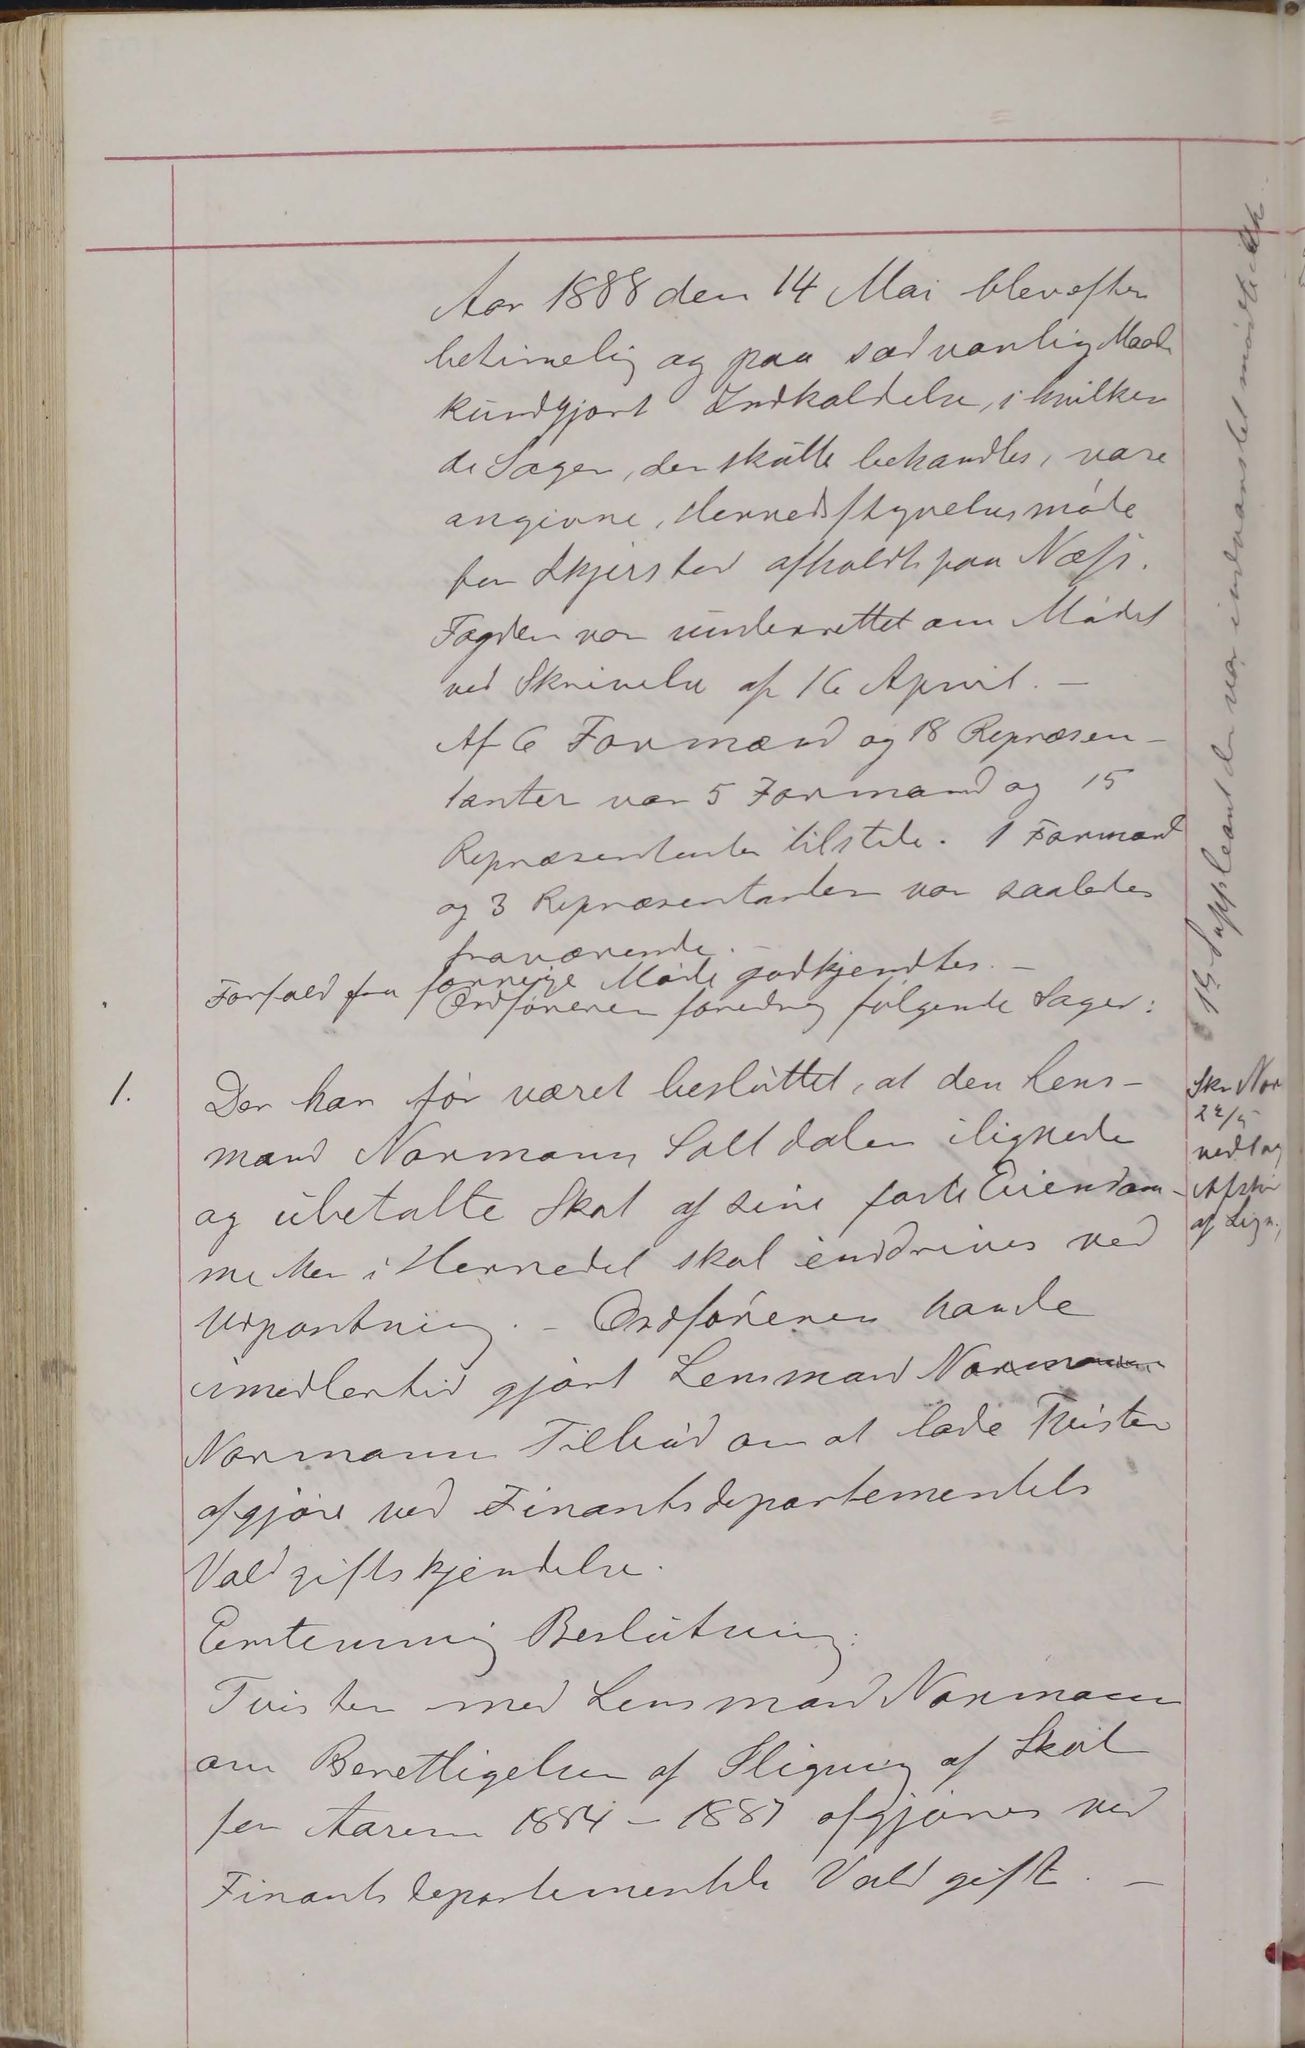 Aar 1888 den 14 Mai blev efter
betimelig og paa sædvanlig Maade
kundgjort Indkaldelse, i hvilken
de Sager, der skulle behandles, vare
angivne, Herredsstyrelsesmøde
for Skjerstad afholdt paa Næss.
Fogden var underrettet om Mødet
ved Skrivelse af 16 April. —
Af 6 Formænd og 18 Repræsen-
tanter var 5 Formænd og 15
Repræsentanter tilstede. 1 Formand
og 3 Repræsentanter var saaledes
fraværende. —
Forfald fra forrige Møde godkjendtes. —
Ordføreren foredrog følgende Sager:
1. Der har før været besluttet, at den Lens-
mand Normann Saltdalen ilignede
og ubetalte Skat af sine faste Eiendom-
me her i Herredet skal inddrives ved
Udpantning. – Ordføreren havde
imedlertid gjort Lensmand Normann
Normann Tilbud om at lade Tvisten
afgjøre ved Finantsdepartementets
Voldgiftskjendelse.
Enstemmig Beslutning:
Tvisten med Lensmand Normann
om Berettigelsen af Iligning af Skat
for Aarene 1884 – 1887 afgjøres ved
Finantsdepartementets Voldgift. —
Skr Nor
22/5
vedlag
Afskr
af Lign.
1 Suppleant der var indvarslet mødte ikke